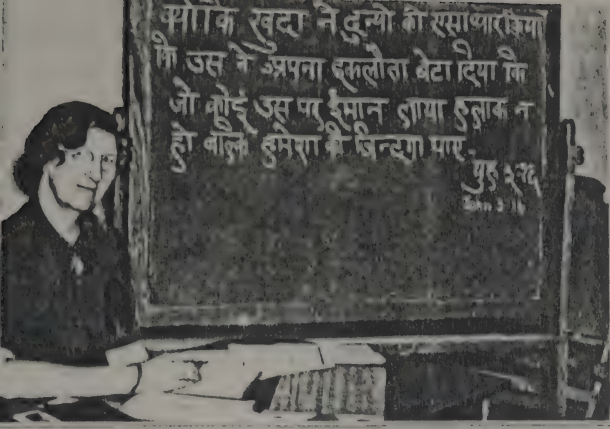 क्योंकि खुदा ने दुन्यो को एसा प्यार किया
कि उस ने अपना इकलौता बेटा दिया कि
जो कोई उस पर ईमान लाया हलाक न
हो बल्कि हमेशा की जिन्दगी पाए
John 3:16